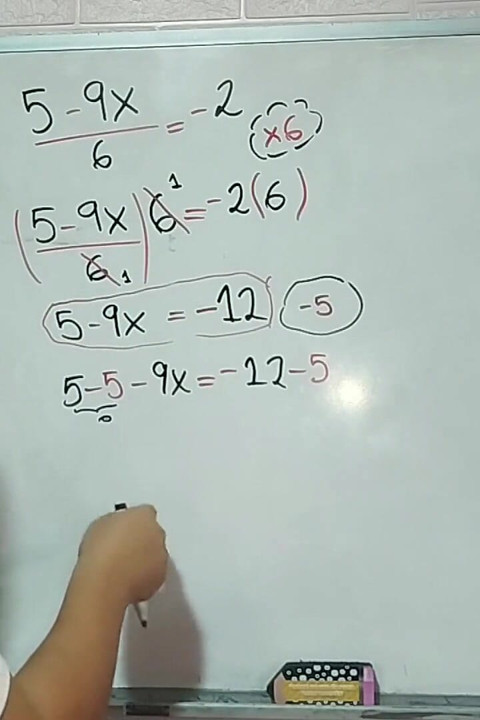 5-9x/6 = -2 ×6
(5-9x/6 1) 6 1 = -2(6)
5-9x = -12 -5
5-5-9x = -12-5
0